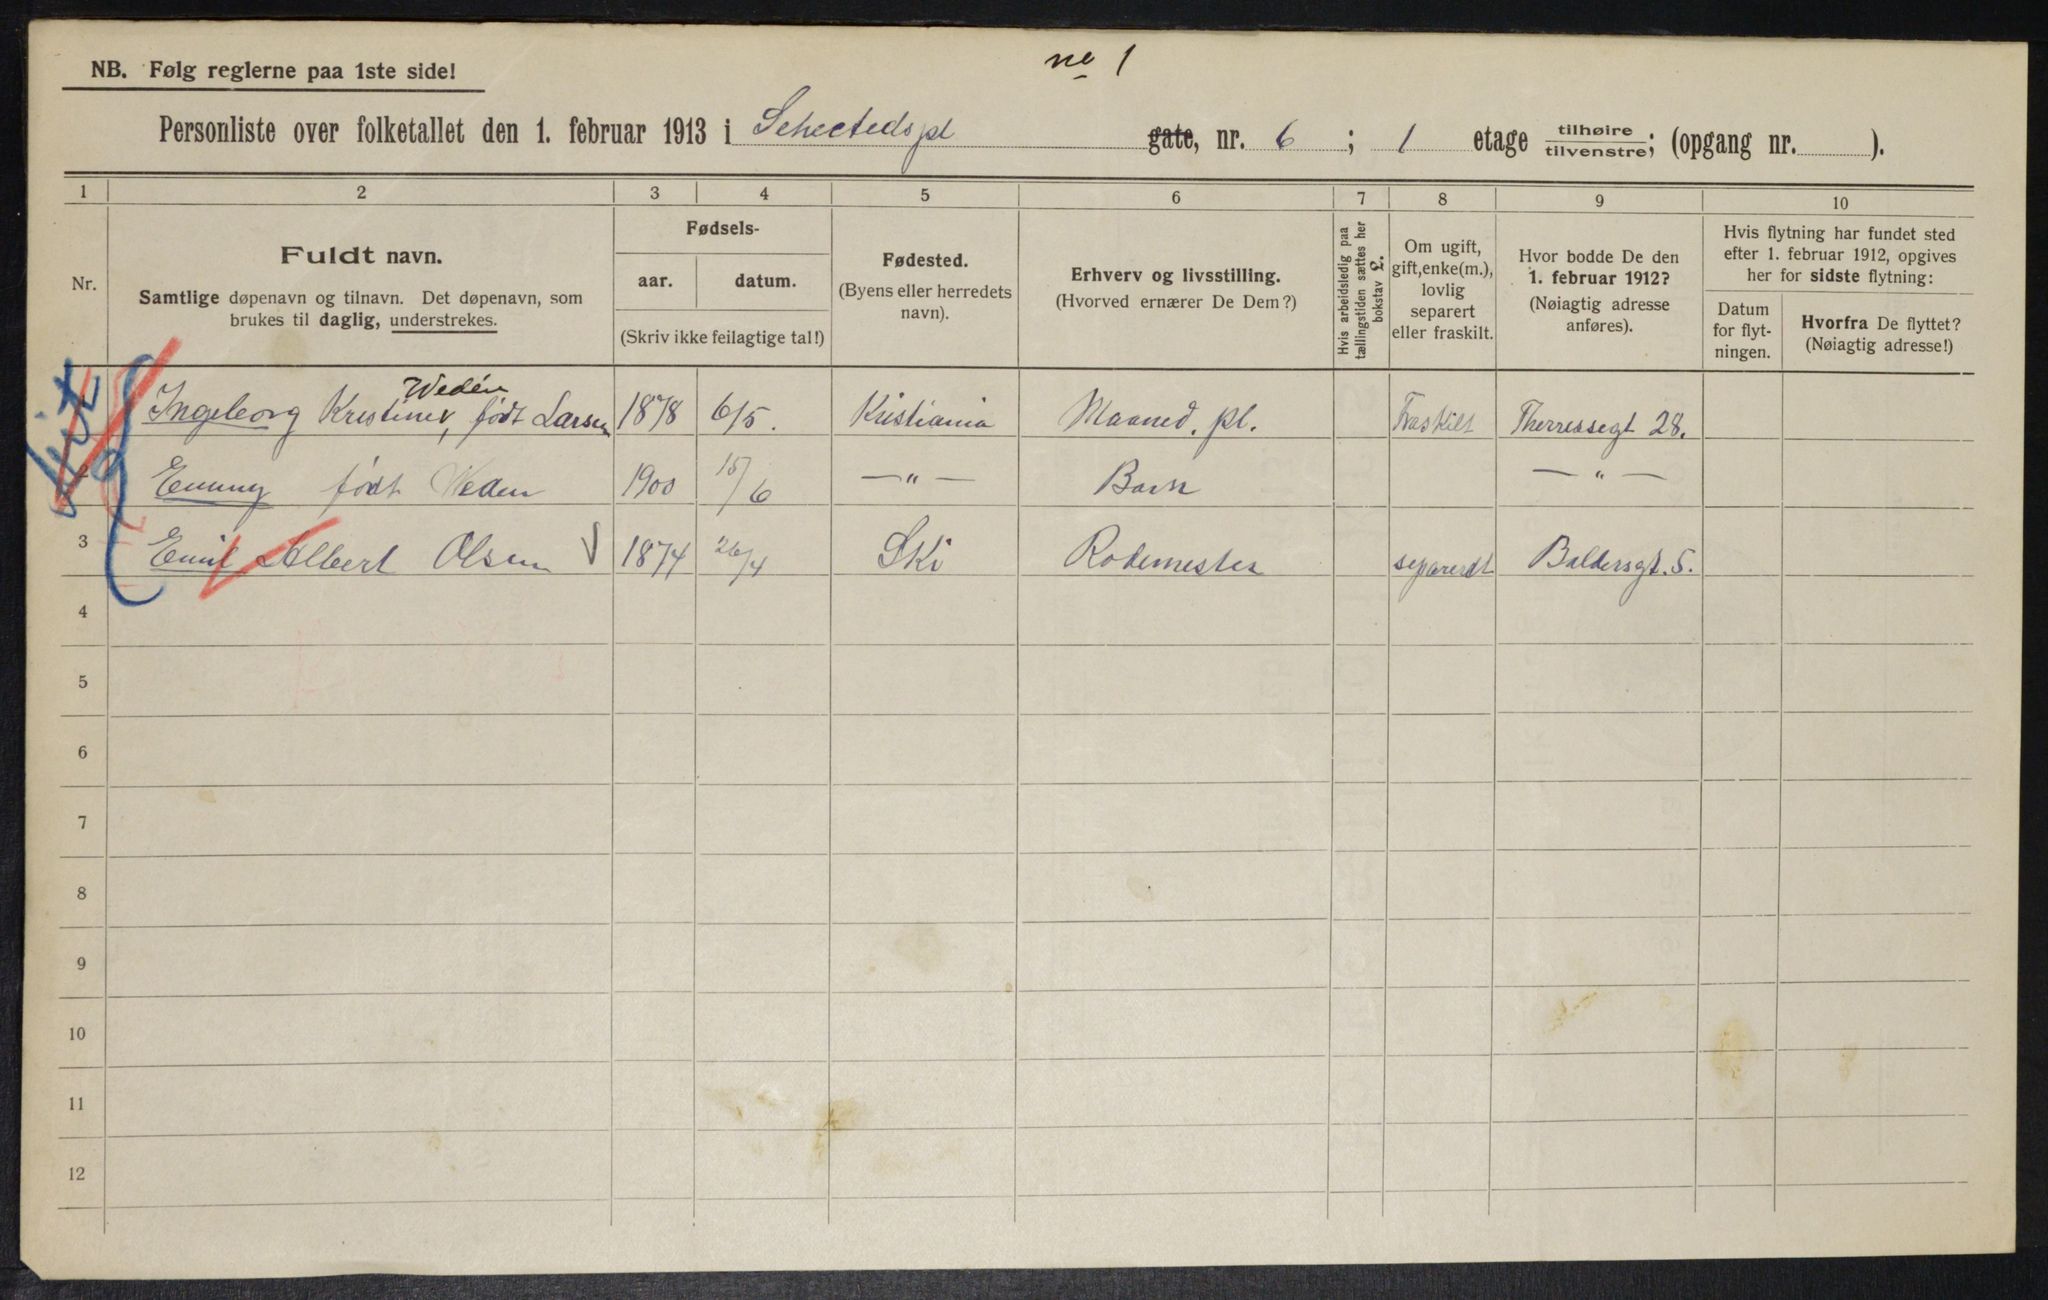 no 1
NB. Følg reglerne paa 1ste side!
Personliste over folketallet den 1. februar 1913 i Schectedspl gate, nr. 6 ; 1 etage tilhøire / tilvenstre; (opgang nr. ).
1 2 3 4 5 6 7 8 9 10
Nr.
Fuldt navn.
Samtlige døpenavn og tilnavn. Det døpenavn, som
brukes til daglig, understrekes.
Fødsels-
aar. datum.
(Skriv ikke feilagtige tal!)
Fødested.
(Byens eller herredets
navn).
Erhverv og livsstilling.
(Hvorved ernærer De Dem?)
Hvis arbeidsledig paa
tællingstiden sættes her
bokstav L.
Om ugift,
gift,enke(m.),
lovlig
separert
eller fraskilt.
Hvor bodde De den
1. februar 1912?
(Nøiagtig adresse
anføres).
Hvis flytning har fundet sted
efter 1. februar 1912, opgives
her for sidste flytning:
Datum
for flyt-
ningen.
Hvorfra De flyttet?
(Nøiagtig adresse!)
Wedén
Ingeborg Kristine, født Larsen 1878 6/5. Kristiania Maaned. pl. Fraskilt Therresegt 28.
2 Emmy født Weden 1900 15/6 — " — Barn — " —
3 Emil Albert Olsen 1874 26/4 Ski Rodemester separerdt Baldersgt. 5.
4
5
6
7
8
9
10
11
12